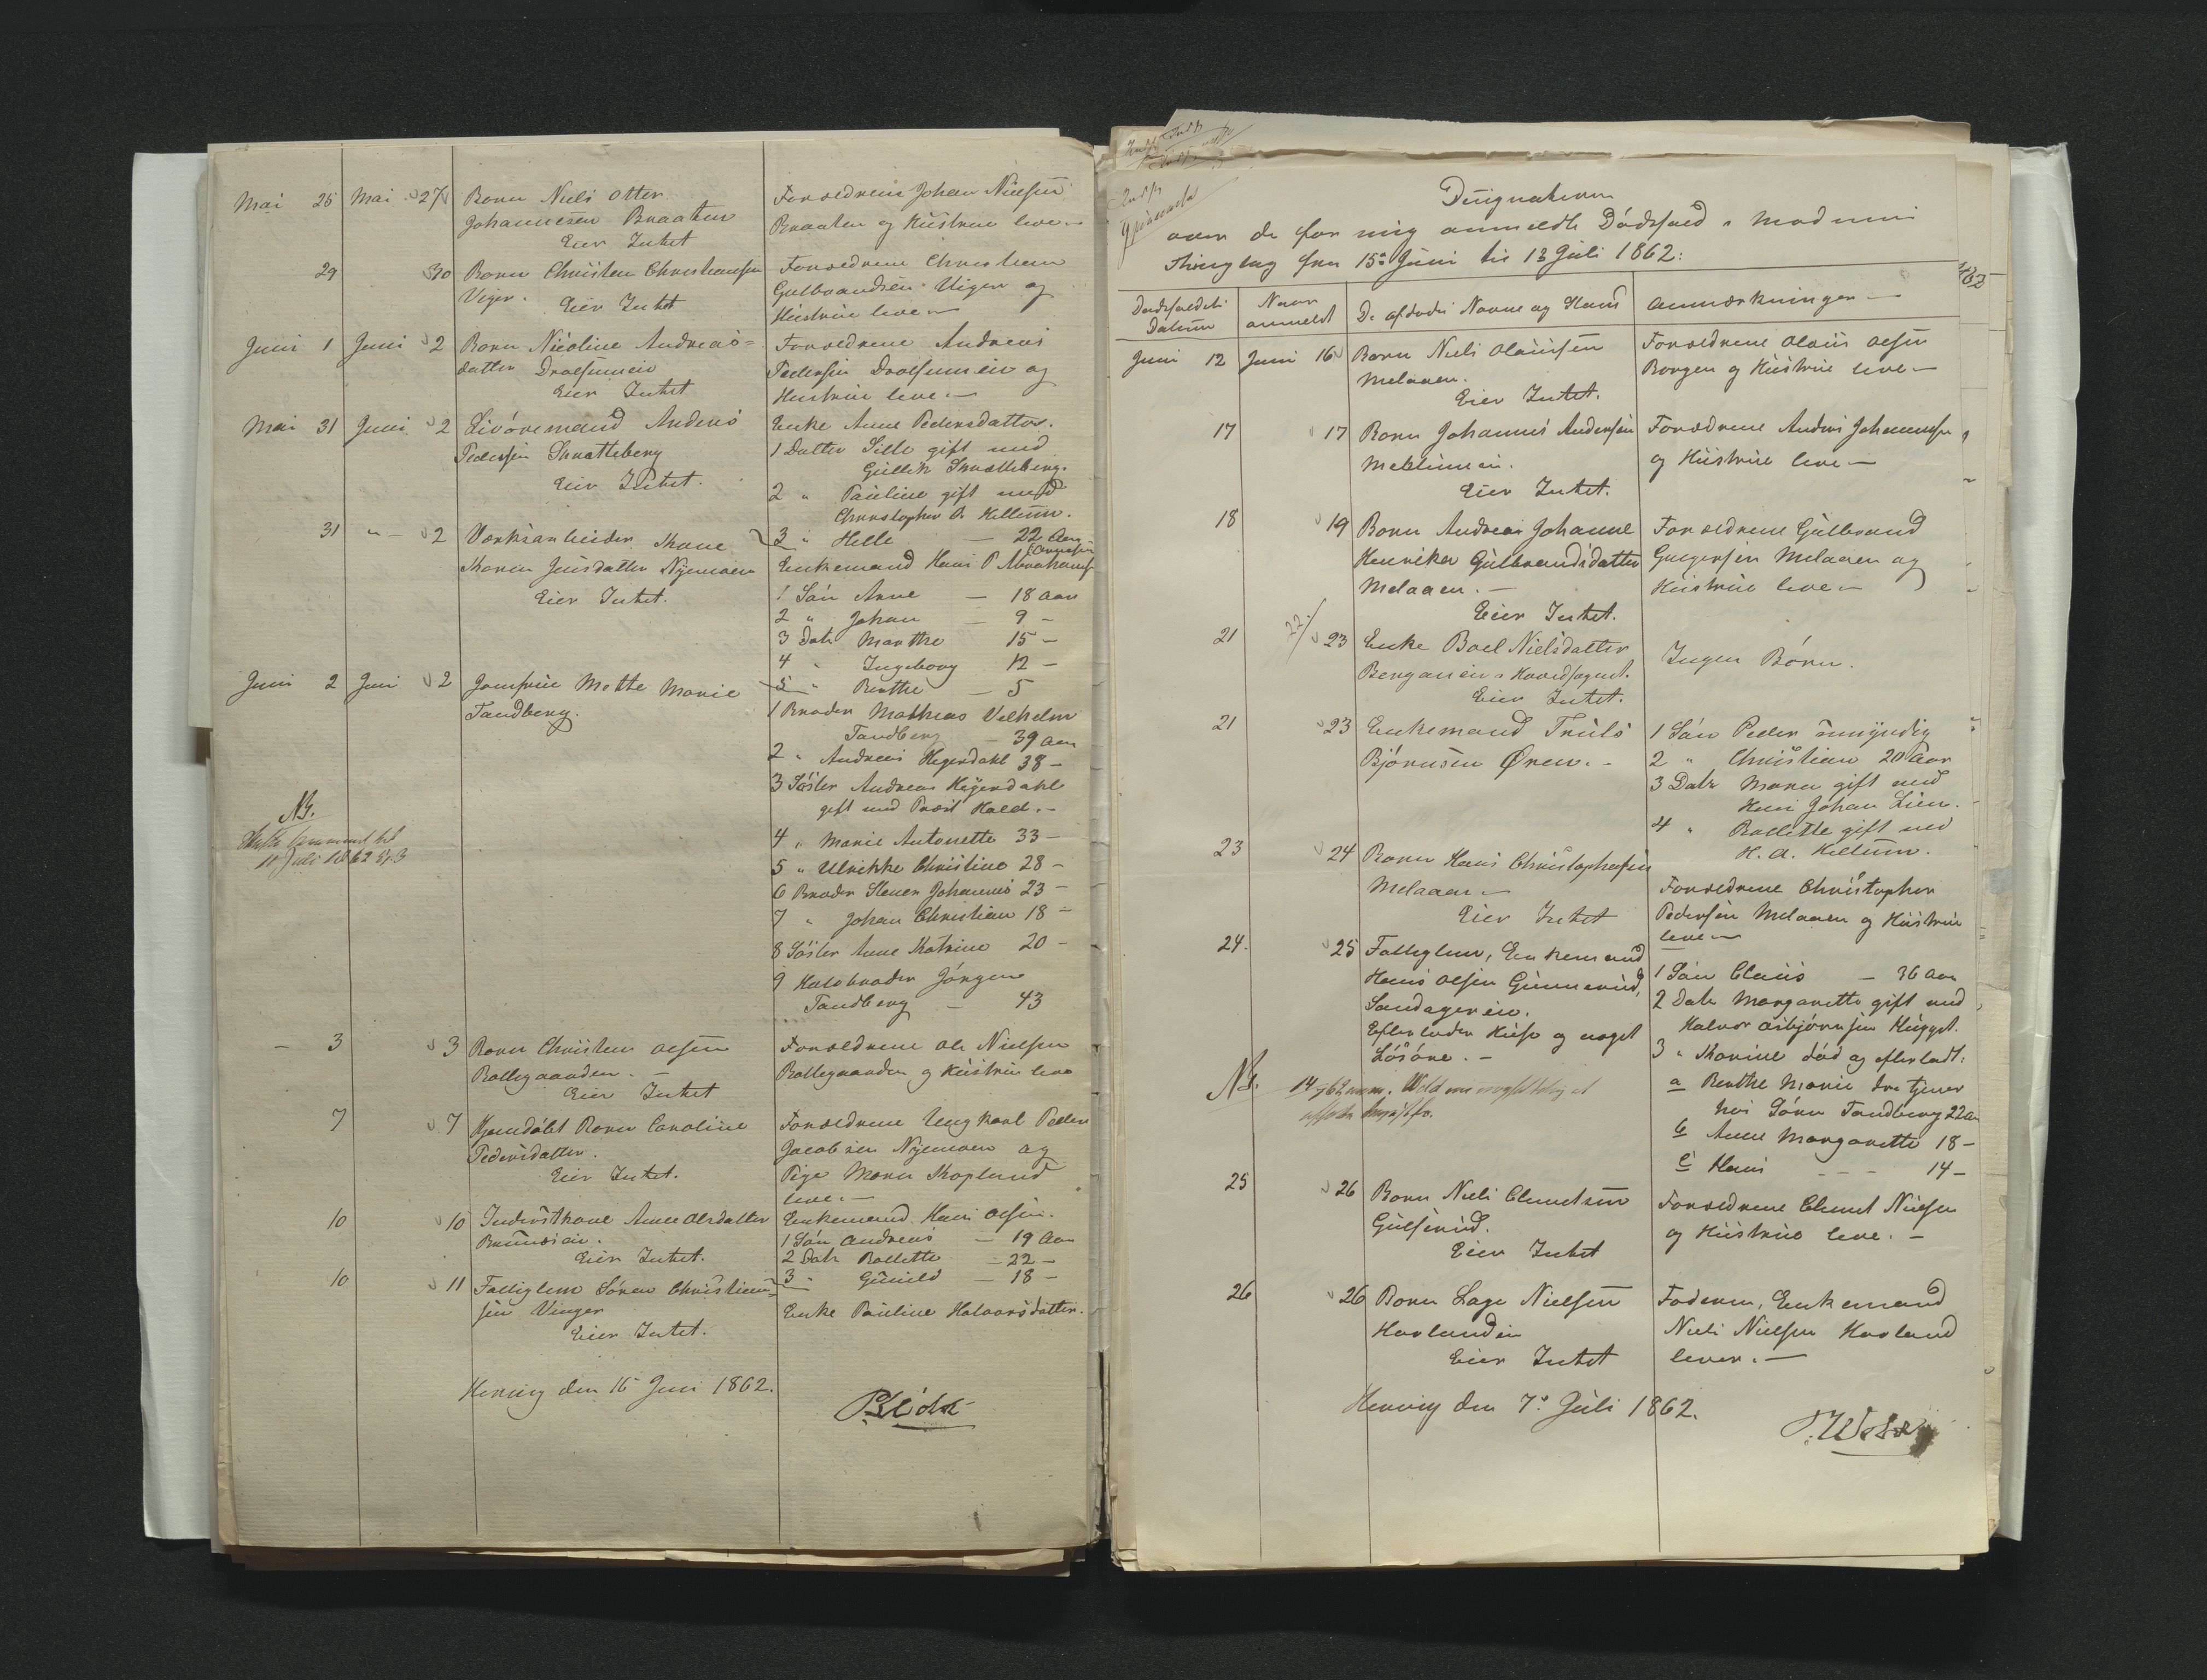 Mai 25 Mai 27 Barn Niels Otter
Johannesen Braaten
Eier Intet
Forældrene Johan Nielsen
Braaten og Hustrue leve
29 30 Barn Christen Christiansen
Viger.
Eier Intet
Forældrene Christian
Gulbrandsen Viger og
Hustrue leve
Juni 1 Juni 2 Barn Nicoline Andreas-
datter
Eier Intet
Forældrene Andreas
Pedersen og
Hustrue leve.
Mai 31 Juni 2 Livøremand Anders
Pedersen Skratteberg
Eier Intet.
Enke Anne Pedersdatter.
1 Datter Sille gift med
Gullik Skratteberg.
2 " Pauline gift med
Christopher A. Kellum.
3 " Helle — 22 Aar
31 " - 2 Værksarbeider Kone
Maren Jensdatter Nymoen
Eier Intet.
Enkemand Hans P. Abrahams
1 Søn Arne — 18 Aar
2 " Johan — 9 -
3 Datr Marthe 15 -
4 " Ingeborg 12 -
5 " Berthe — 5
Juni 2 Juni 2 Jomfrue Mette Marie
Tandberg.
1 Broder Mathias Velhelm
Tandberg — 39 Aar
2 " Andreas Hegerdahl 38 -
3 Søster Andrea Hegerdahl
gift med Præst Hald. -
4 " Marie Antonette 33 -
5 " Ulrikke Christine 28 -
6 Broder Steuer Johannes 23 -
7 " Johan Christian 18 -
8 Søster Anne Katrine 20 -
9 Halvbroder Jørgen
Tandberg — 43
NB.
11 Juli 1862
- 3 3 Barn Christen Olsen
Rallegaarden. -
Eier Intet
Forældrene Ole Nielsen
Rallegaarden og Hustrue leve
7 7 Hjemdøbt Barn Caroline
Pedersdatter.
Eier Intet.
Forældrene Ungkarl Peder
Jacobsen Nymoen og
Pige Maren Kopland
leve. -
10 10 Inderstkone Anne Olsdatter
Eier Intet.
Enkemand Hans Olsen.
1 Søn Andreas — 19 Aar
2 Datr Rallette — 22 -
3 " Gunild — 18 -
10 11 Fattiglem Søren Christian-
sen Vinger
Eier Intet.
Enke Pauline Halvorsdatter.
den 16 Juni 1862.
Designationen
over de for mig anmeldte Dødsfald i Modums
Thinglag fra 15de Juni til 13 Juli 1862:
Dødsfaldets
Datum
Naar
anmeldt
De afdødes Navne og Stand
Anmærkninger —
Juni 12 Juni 16 Barn Niels Olausen
Melaaen.
Eier Intet.
Forældrene Olaus Olsen
Borgen og Hustrue leve -
17 17 Barn Johannes Andersen
Eier Intet.
Forældrene Anders Johannesen
og Hustrue leve —
18 19 Barn Andrea Johanne
Henrika Gulbrandsdatter
Melaaen. -
Eier Intet.
Forældrene Gulbrand
Gregersen Melaaen og
Hustrue leve -
21 22/ 23 Enke Boel Nielsdatter
Eier Intet.
Ingen Børn.
21 23 Enkemand Truls
Bjørnsen Øren. -
1 Søn Peder umyndig
2 " Christian 20 Aar
3 Datr Maren gift med
Hans Johan Lien.
4 " Rallette gift med
H. A. Kellum.
23 24 Barn Hans Christophersen
Melaaen —
Eier Intet
Forældrene Christopher
Pedersen Melaaen og Hustrue
leve —
24. 25 Fattiglem, Enkemand
Hans Olsen Gunnerud,
Sandagereie.
Efterlader Huse og noget
Løsøre. -
1 Søn Claus — 36 Aar
2 Datr Margarette gift med
Halvor Asbjørnsen Hugget.
3 " Karine død og efterladt:
a Berthe Marie der tjener
hos Søren Tandberg 22 Aar
b Anne Margarette 18 -
c Hans - - - 14 -
NB.
25 26 Barn Niels Clemetsen
Gulsrud.
Eier Intet
Forældrene Clemet Nielsen
og Hustrue leve. -
26 26 Barn Lage Nielsen
Eier Intet
Faderen, Enkemand
Niels Nielsen Havland
lever. —
den 7de Juli 1862.